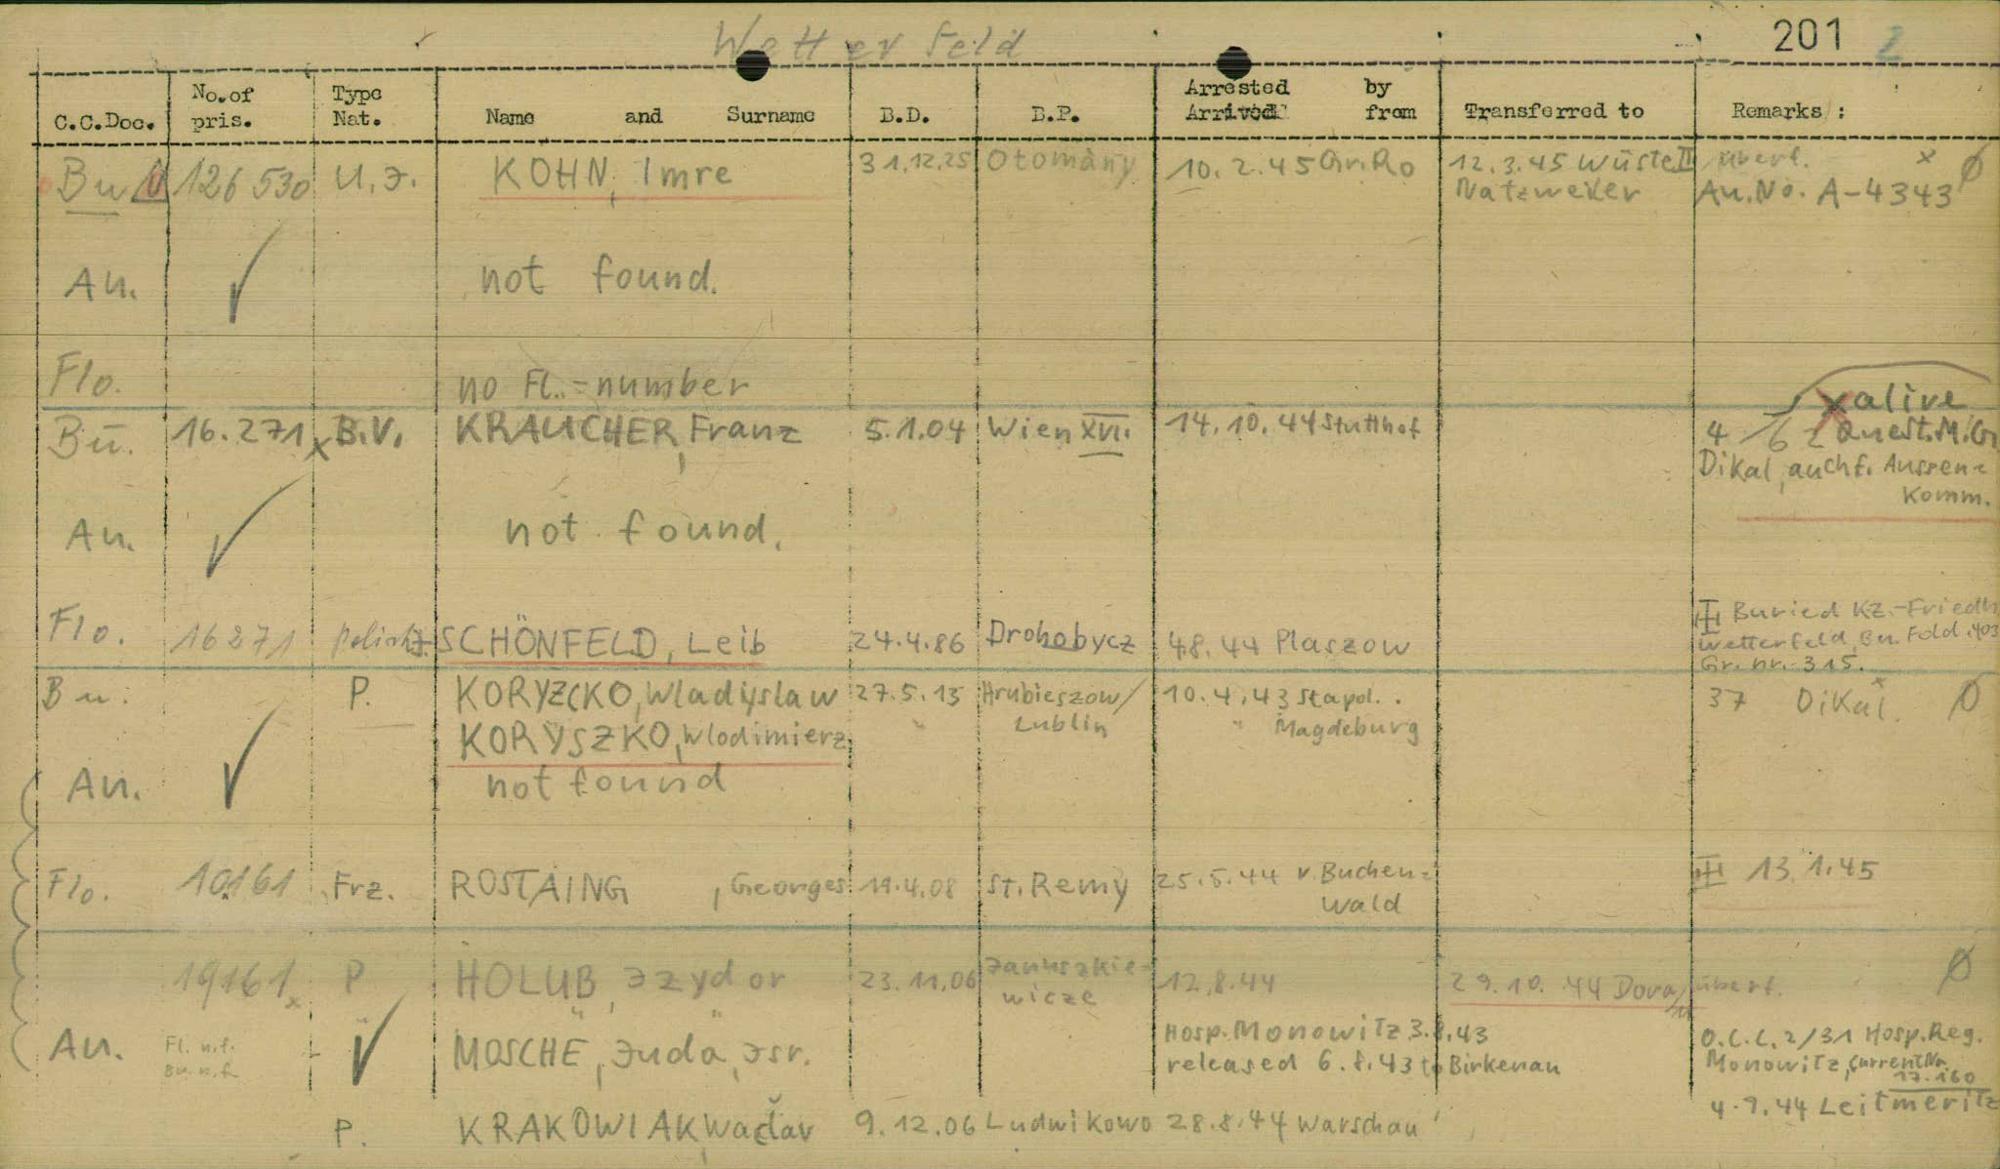 Wetterfeld
201 2
C.C.Doc. No. of pris. Type Nat. Name and Surname B.D. B.P. Arrested by Arrived from Transferred to Remarks :
Bu 126 530 U. J. KOHN, Imre 31.12.25 Otomány 10. 2. 45 Gr. Ro 12. 3. 45 Wüste II übert. x Ø
Natzweiler An. No. A-4343
An. not found.
Flo. no Fl.-number
x alive
Bu. 16.271 x B.V. KRAUCHER, Franz 5.1.04 Wien XVI. 14. 10. 44 Stutthof 4 Quest. M.G.
Dikal, auch f. Aussen=
Komm.
An. not found.
Buried KZ.-Friedh
Flo. 16271 SCHÖNFELD, Leib 24.4.86 Drohobycz 4.8. 44 Plaszow Wetterfeld, Bu. Fold. 403
Gr. nr. 315.
Bu. P. KORYZCKO, Wladyslaw 27.5.13 Hrubieszow/ 10. 4. 43 Stapol. 37 Dikal. x Ø
KORYSZKO, Wlodimierz " Lublin " Magdeburg
An. not found
13. 1. 45
Flo. 10161 Frz. ROSTAING, Georges 19.4.08 St. Remy 25. 5. 44 v. Buchen=
wald
19161 x P HOLUB, Izydor 23. 11. 06 Januszkie- 12. 8. 44 29. 10. 44 Dora übert. Ø
wicze
Hosp. Monowitz 3.8.43 O.C.C. 2/31 Hosp. Reg.
An. Fl. n.f. MOSCHE, Juda, Isr. released 6. 8. 43 to Birkenau Monowitz, Current Nr.
Bu. n.f. 17.160
P. KRAKOWIAK, Waclav 9. 12. 06 Ludwikowo 28. 8. 44 Warschau 4. 9. 44 Leitmeritz